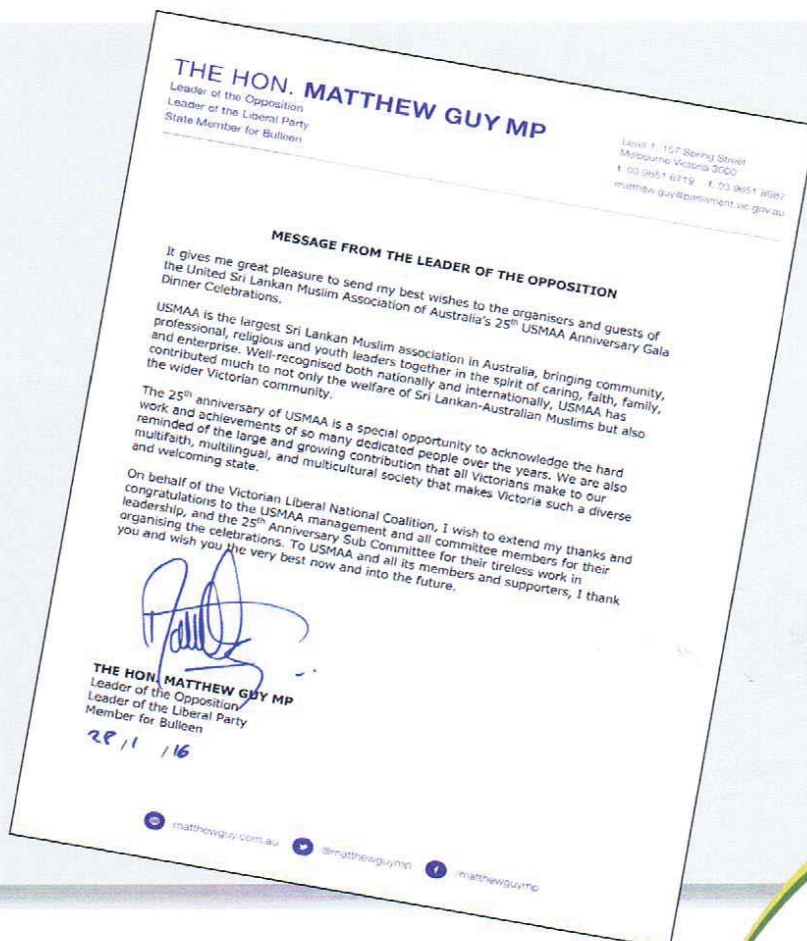 THE HON. MATTHEW GUY MP
Leader of the Opposition
Leader of the Liberal Party
State Member for Bulleen
Level 1, 157 Spring Street
Melbourne Victoria 3000
t. 03 9651 6719 f. 03 9651 8987
matthew.guy@parliament.vic.gov.au
MESSAGE FROM THE LEADER OF THE OPPOSITION
It gives me great pleasure to send my best wishes to the organisers and guests of
the United Sri Lankan Muslim Association of Australia's 25th USMAA Anniversary Gala
Dinner Celebrations.
USMAA is the largest Sri Lankan Muslim association in Australia, bringing community,
professional, religious and youth leaders together in the spirit of caring, faith, family,
and enterprise. Well-recognised both nationally and internationally, USMAA has
contributed much to not only the welfare of Sri Lankan-Australian Muslims but also
the wider Victorian community.
The 25th anniversary of USMAA is a special opportunity to acknowledge the hard
work and achievements of so many dedicated people over the years. We are also
reminded of the large and growing contribution that all Victorians make to our
multifaith, multilingual, and multicultural society that makes Victoria such a diverse
and welcoming state.
On behalf of the Victorian Liberal National Coalition, I wish to extend my thanks and
congratulations to the USMAA management and all committee members for their
leadership, and the 25th Anniversary Sub Committee for their tireless work in
organising the celebrations. To USMAA and all its members and supporters, I thank
you and wish you the very best now and into the future.
THE HON. MATTHEW GUY MP
Leader of the Opposition
Leader of the Liberal Party
Member for Bulleen
28/1/16
matthewguy.com.au @matthewguymp /matthewguymp